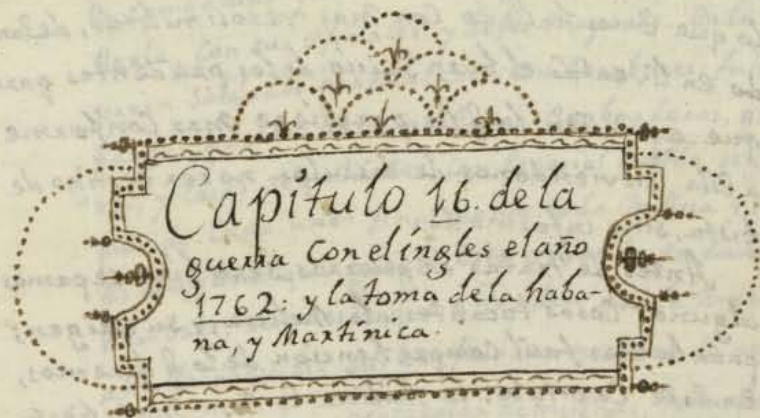 Capitulo 16. de la
guerra Con el ingles el año
1762: y la toma de la haba-
na, y Martinica.